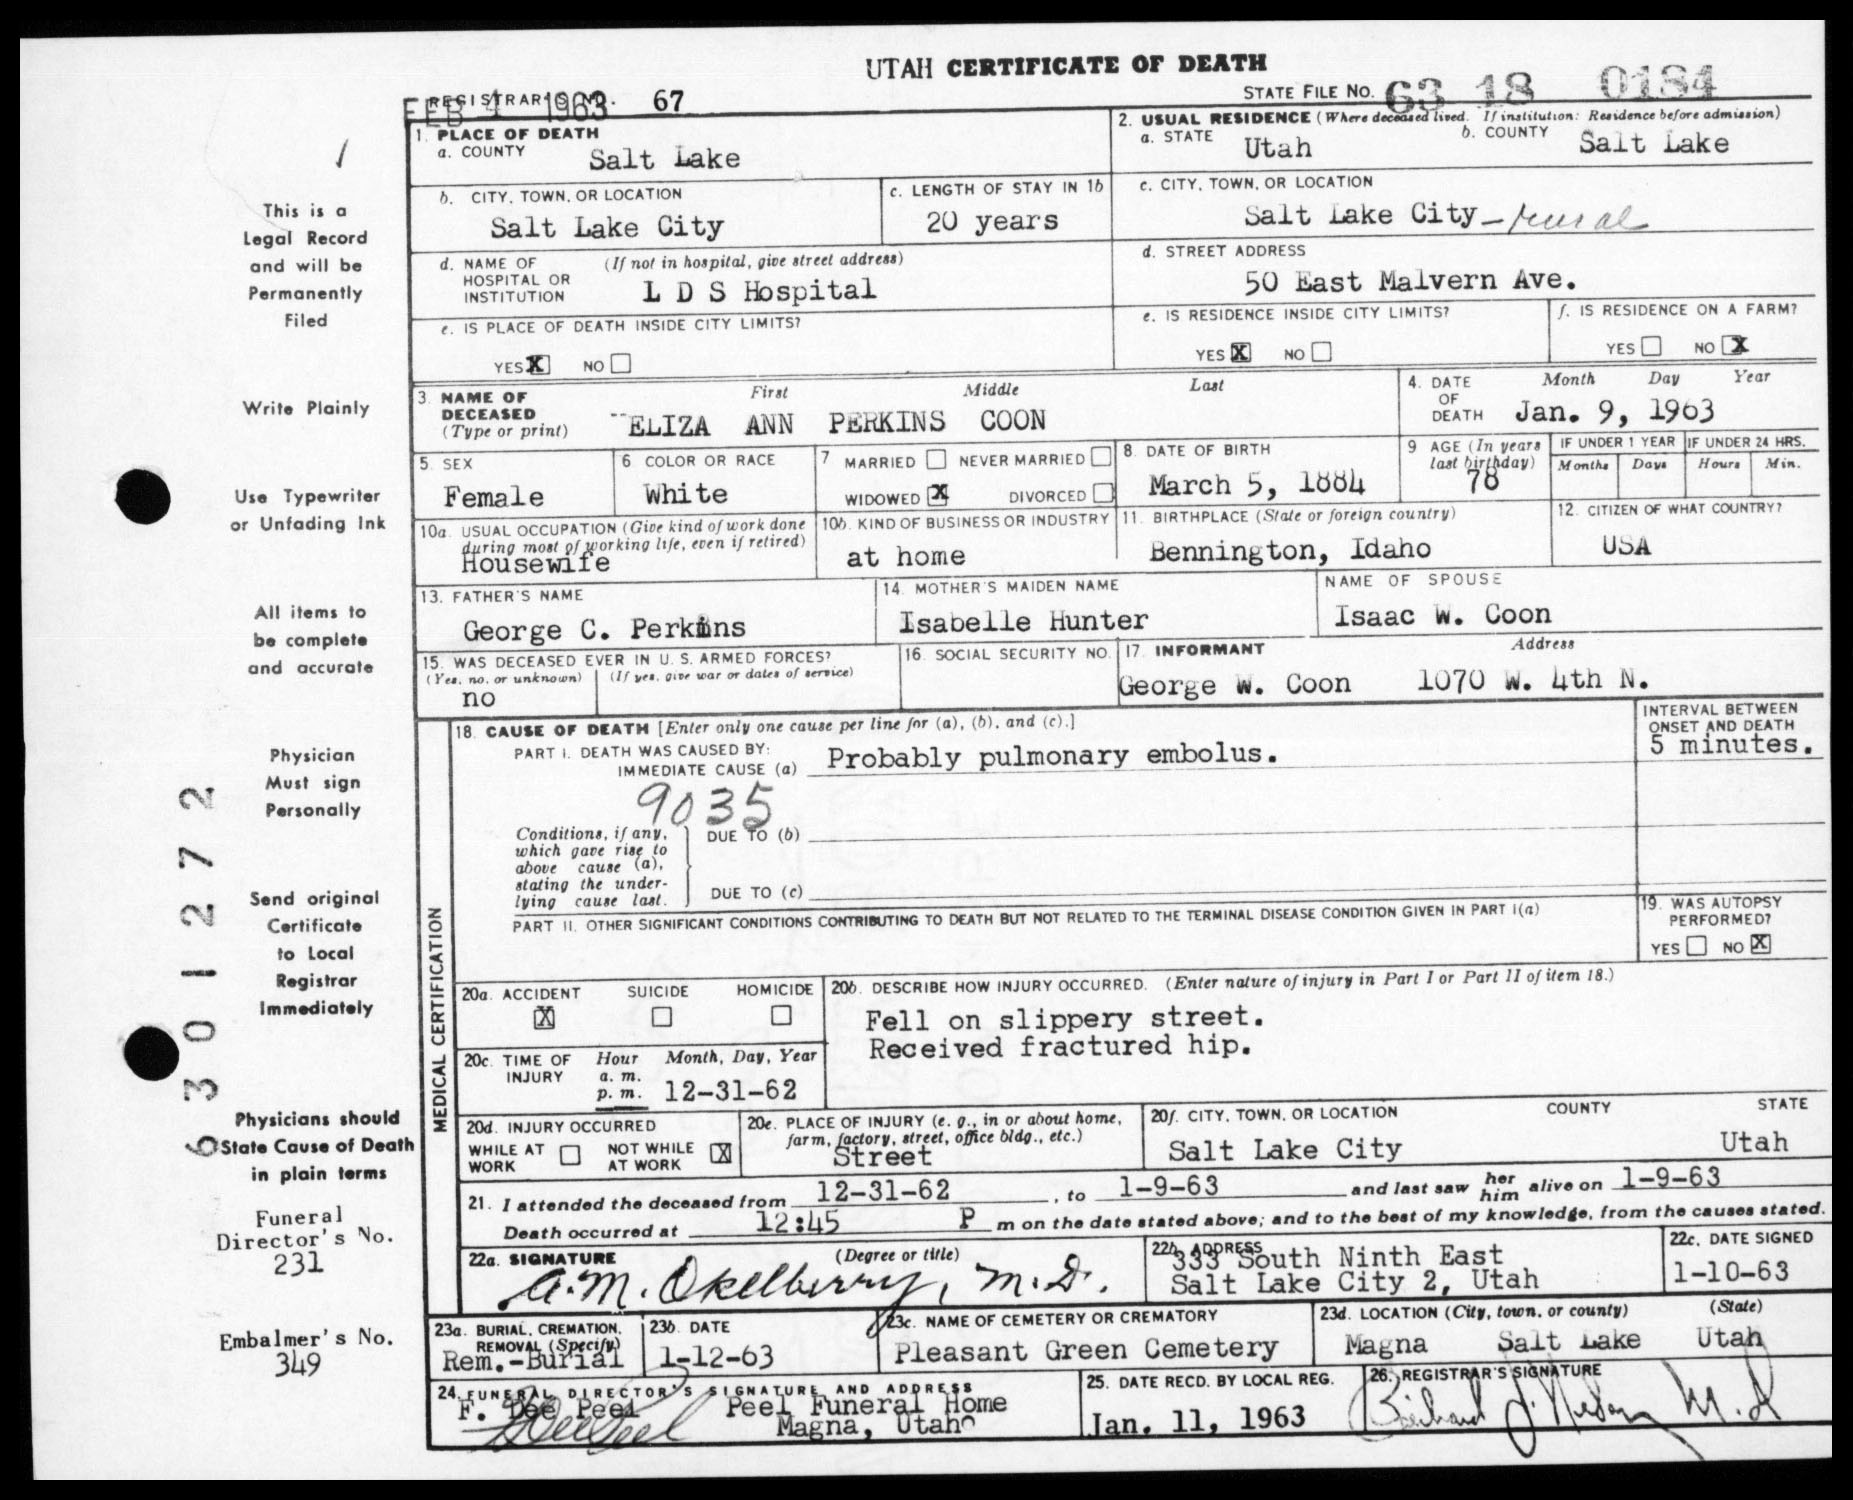 UTAH CERTIFICATE OF DEATH
REGISTRAR'S NO. 67
FEB 4 1963
STATE FILE NO. 63 18 0184
1. PLACE OF DEATH
a. COUNTY Salt Lake
2. USUAL RESIDENCE (Where deceased lived. If institution: Residence before admission)
a. STATE Utah b. COUNTY Salt Lake
b. CITY, TOWN, OR LOCATION Salt Lake City
c. LENGTH OF STAY IN 1b 20 years
c. CITY, TOWN, OR LOCATION
Salt Lake City - rural
d. NAME OF HOSPITAL OR INSTITUTION (If not in hospital, give street address)
L D S Hospital
d. STREET ADDRESS
50 East Malvern Ave.
e. IS PLACE OF DEATH INSIDE CITY LIMITS?
YES X NO
e. IS RESIDENCE INSIDE CITY LIMITS?
YES X NO
f. IS RESIDENCE ON A FARM?
YES NO X
3. NAME OF DECEASED (Type or print)
First Middle Last
ELIZA ANN PERKINS COON
4. DATE OF DEATH Month Day Year
Jan. 9, 1963
5. SEX
Female
6. COLOR OR RACE
White
7 MARRIED NEVER MARRIED
WIDOWED X DIVORCED
8. DATE OF BIRTH
March 5, 1884
9 AGE (In years last birthday)
78
IF UNDER 1 YEAR
Months Days
IF UNDER 24 HRS.
Hours Min.
10a. USUAL OCCUPATION (Give kind of work done during most of working life, even if retired)
Housewife
10b. KIND OF BUSINESS OR INDUSTRY
at home
11. BIRTHPLACE (State or foreign country)
Bennington, Idaho
12. CITIZEN OF WHAT COUNTRY?
USA
13. FATHER'S NAME
George C. Perkins
14. MOTHER'S MAIDEN NAME
Isabelle Hunter
NAME OF SPOUSE
Isaac W. Coon
15. WAS DECEASED EVER IN U. S. ARMED FORCES?
(Yes, no, or unknown) (If yes, give war or dates of service)
no
16. SOCIAL SECURITY NO.
17. INFORMANT Address
George W. Coon 1070 W. 4th N.
MEDICAL CERTIFICATION
18. CAUSE OF DEATH [Enter only one cause per line for (a), (b), and (c).]
PART I. DEATH WAS CAUSED BY:
IMMEDIATE CAUSE (a) Probably pulmonary embolus.
INTERVAL BETWEEN ONSET AND DEATH
5 minutes.
9035
Conditions, if any, which gave rise to above cause (a), stating the underlying cause last.
DUE TO (b)
DUE TO (c)
PART II. OTHER SIGNIFICANT CONDITIONS CONTRIBUTING TO DEATH BUT NOT RELATED TO THE TERMINAL DISEASE CONDITION GIVEN IN PART I(a)
19. WAS AUTOPSY PERFORMED?
YES NO X
20a. ACCIDENT SUICIDE HOMICIDE
X
20b. DESCRIBE HOW INJURY OCCURRED. (Enter nature of injury in Part I or Part II of item 18.)
Fell on slippery street.
Received fractured hip.
20c. TIME OF INJURY Hour Month, Day, Year
a. m.
p. m. 12-31-62
20d. INJURY OCCURRED
WHILE AT WORK NOT WHILE AT WORK X
20e. PLACE OF INJURY (e. g., in or about home, farm, factory, street, office bldg., etc.)
Street
20f. CITY, TOWN, OR LOCATION COUNTY STATE
Salt Lake City Utah
21. I attended the deceased from 12-31-62, to 1-9-63 and last saw her him alive on 1-9-63
Death occurred at 12:45 P m on the date stated above; and to the best of my knowledge, from the causes stated.
22a. SIGNATURE (Degree or title)
A. M. Okelberry, M.D.
22b. ADDRESS
333 South Ninth East
Salt Lake City 2, Utah
22c. DATE SIGNED
1-10-63
23a. BURIAL, CREMATION, REMOVAL (Specify)
Rem.-Burial
23b. DATE
1-12-63
23c. NAME OF CEMETERY OR CREMATORY
Pleasant Green Cemetery
23d. LOCATION (City, town, or county) (State)
Magna Salt Lake Utah
24. FUNERAL DIRECTOR'S SIGNATURE AND ADDRESS
F. Dee Peel Peel Funeral Home
Magna, Utah
25. DATE RECD. BY LOCAL REG.
Jan. 11, 1963
26. REGISTRAR'S SIGNATURE
This is a
Legal Record
and will be
Permanently
Filed
Write Plainly
Use Typewriter
or Unfading Ink
All items to
be complete
and accurate
Physician
Must sign
Personally
Send original
Certificate
to Local
Registrar
Immediately
Physicians should
State Cause of Death
in plain terms
Funeral
Director's No.
231
Embalmer's No.
349
630 1272